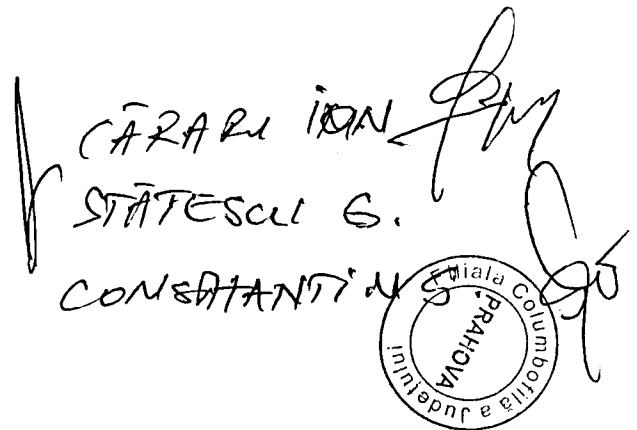 CĂRARU ION
STĂTESCU G.
CONSTANTIN S
Filiala Columbofilă a Județului
PRAHOVA